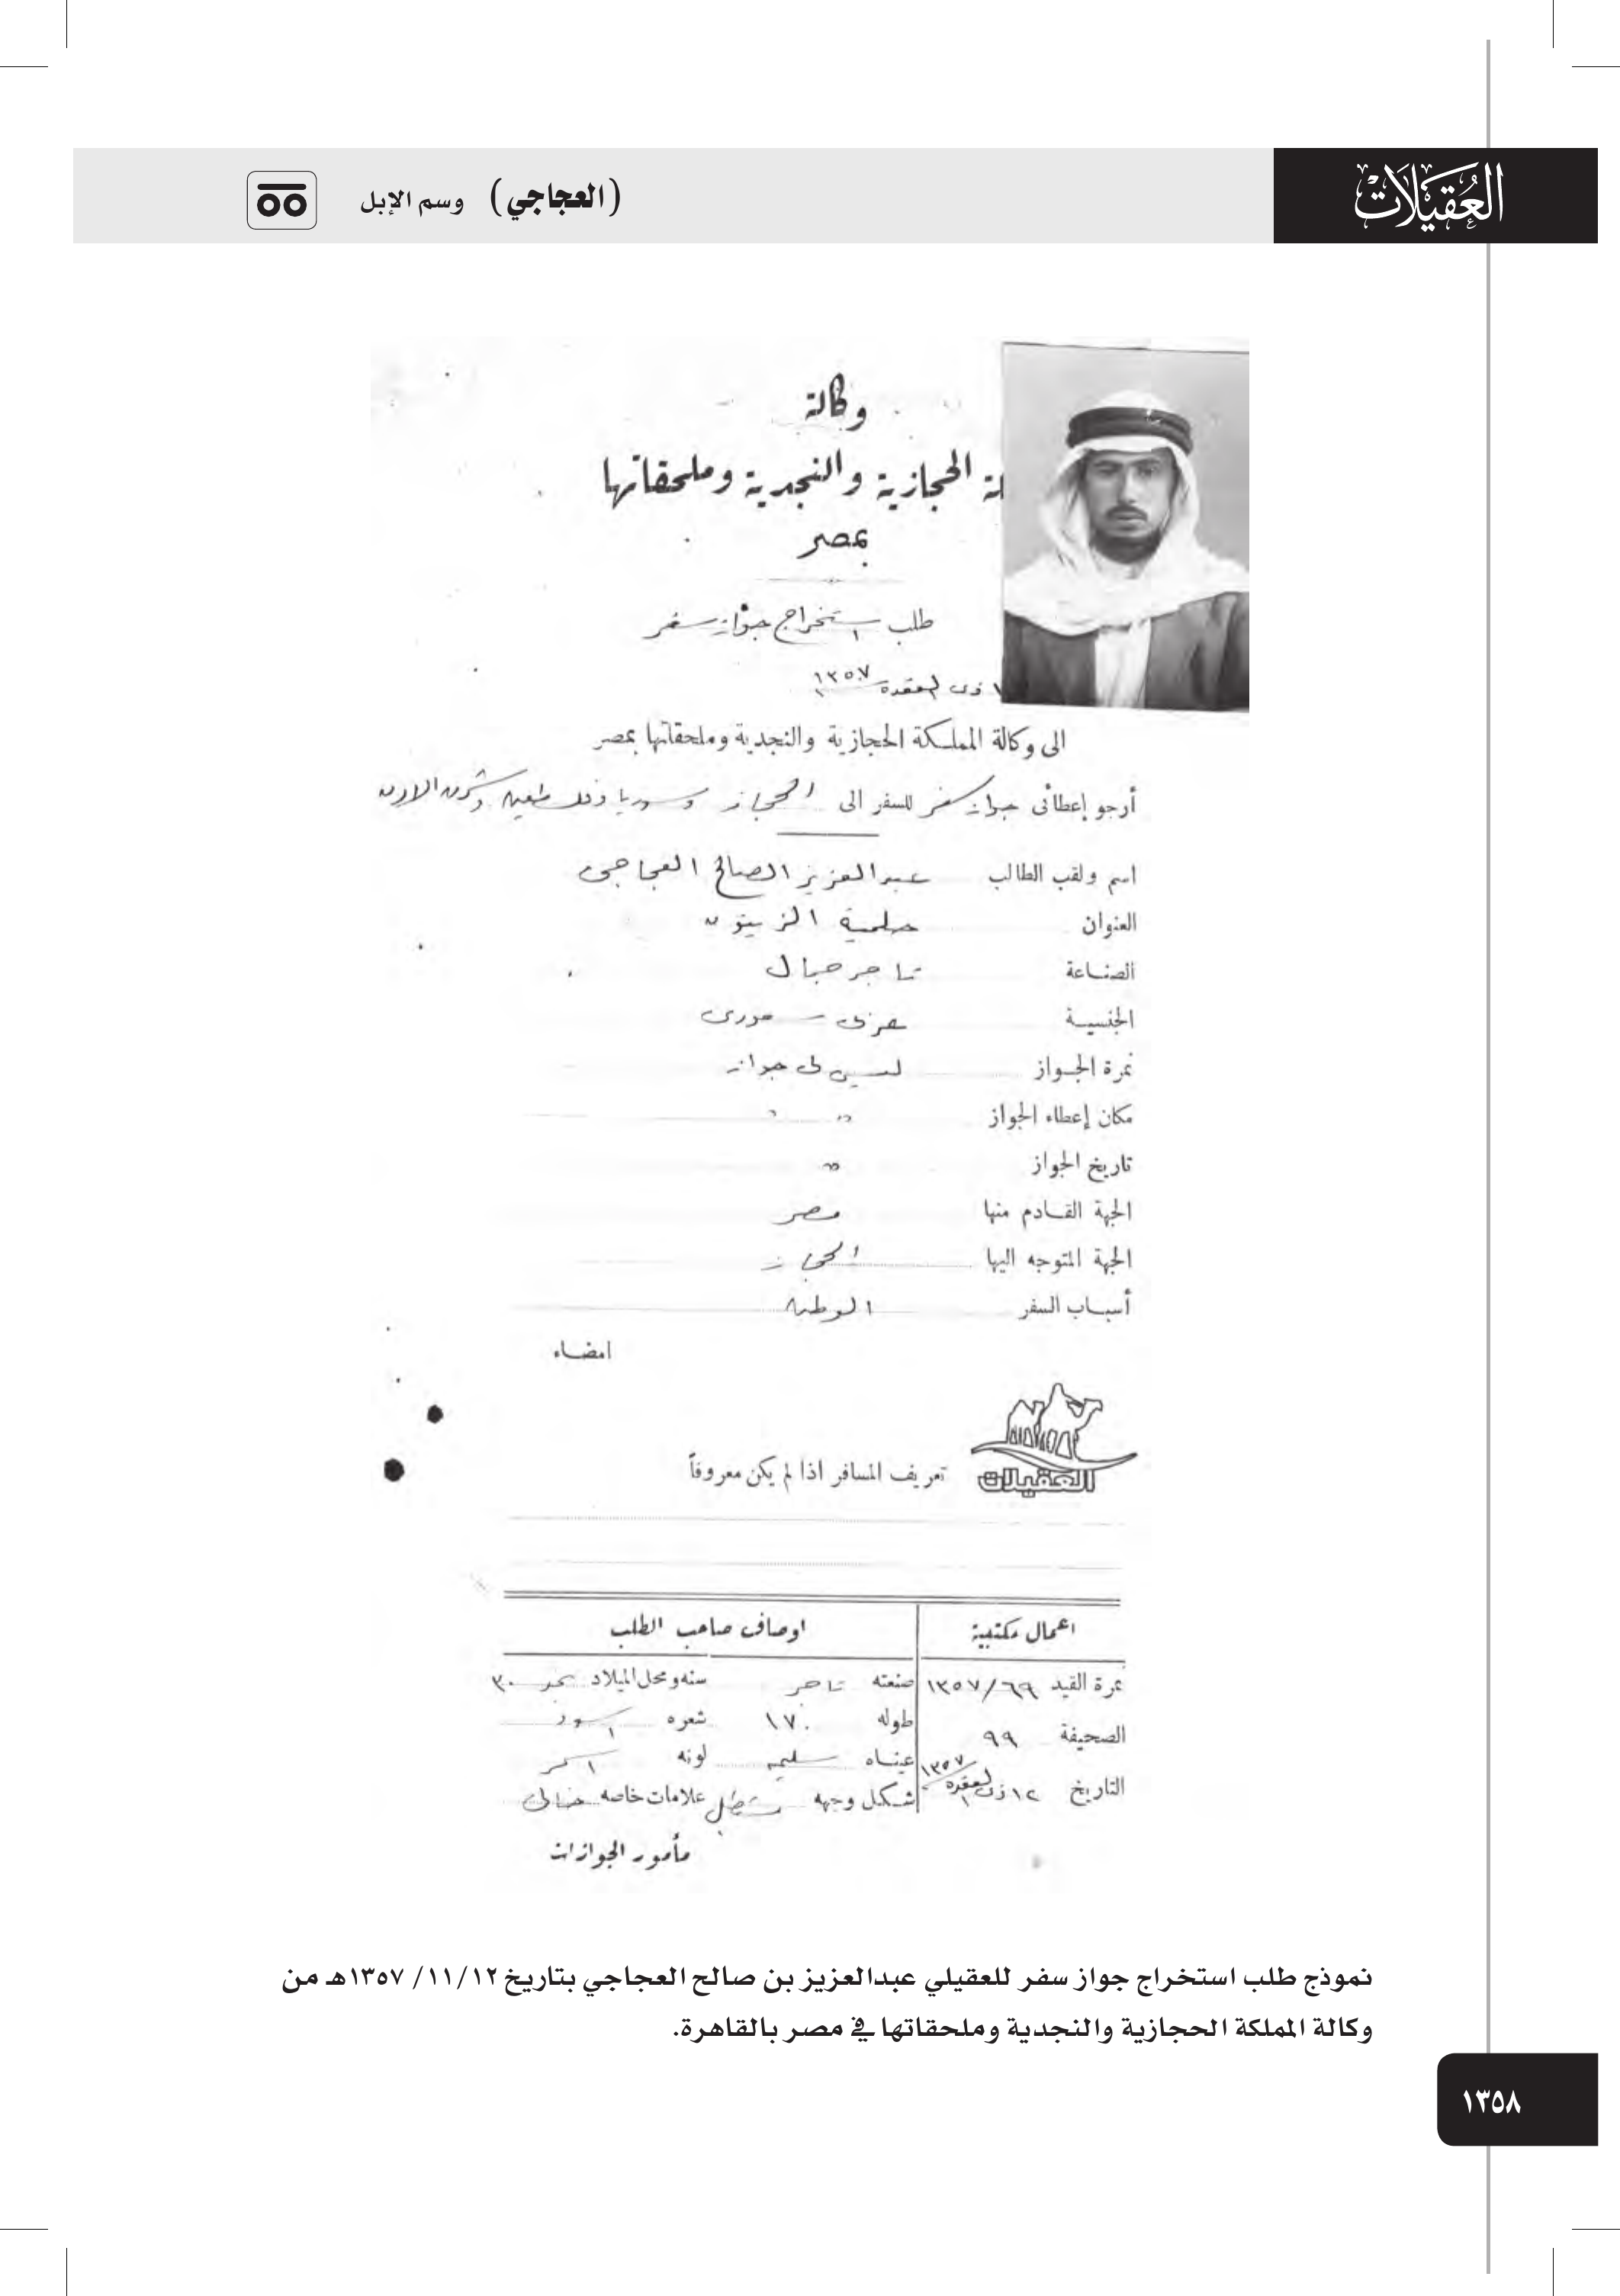 العُقَيْلَات
(العجاجي) وسم الإبل
وكالة
الحجازية والنجدية وملحقاتها
بمصر
طلب استخراج جواز سفر
ذى القعدة ١٣٥٧
الى وكالة المملكة الحجازية والنجدية وملحقاتها بمصر
أرجو إعطائى جواز سفر للسفر الى الحجاز وسوريا وفلسطين وشرق الاردن
اسم ولقب الطالب عبدالعزيز الصالح العجاجى
العنوان حلمية الزيتون
الصناعة تاجر جمال
الجنسية سعودى
نمرة الجواز ليس لى جواز
مكان إعطاء الجواز " "
تاريخ الجواز "
الجهة القادم منها مصر
الجهة المتوجه اليها الحجاز
أسباب السفر الوطن
امضاء
العقيلات
تعريف المسافر اذا لم يكن معروفاً
اعمال مكتبية
اوصاف صاحب الطلب
نمرة القيد ١٣٥٧/٦٩ صنعته تاجر سنه ومحل الميلاد ٣٠
الصحيفة ٩٩ طوله ١٧٠ شعره اسود
التاريخ ١٢ ذى القعدة ١٣٥٧ عيناه سليمه لونه اسمر
شكل وجهه مستطيل علامات خاصه خالى
مأمور الجوازات
نموذج طلب استخراج جواز سفر للعقيلي عبدالعزيز بن صالح العجاجي بتاريخ ١٢/ ١١/ ١٣٥٧هـ من
وكالة المملكة الحجازية والنجدية وملحقاتها في مصر بالقاهرة.
١٣٥٨